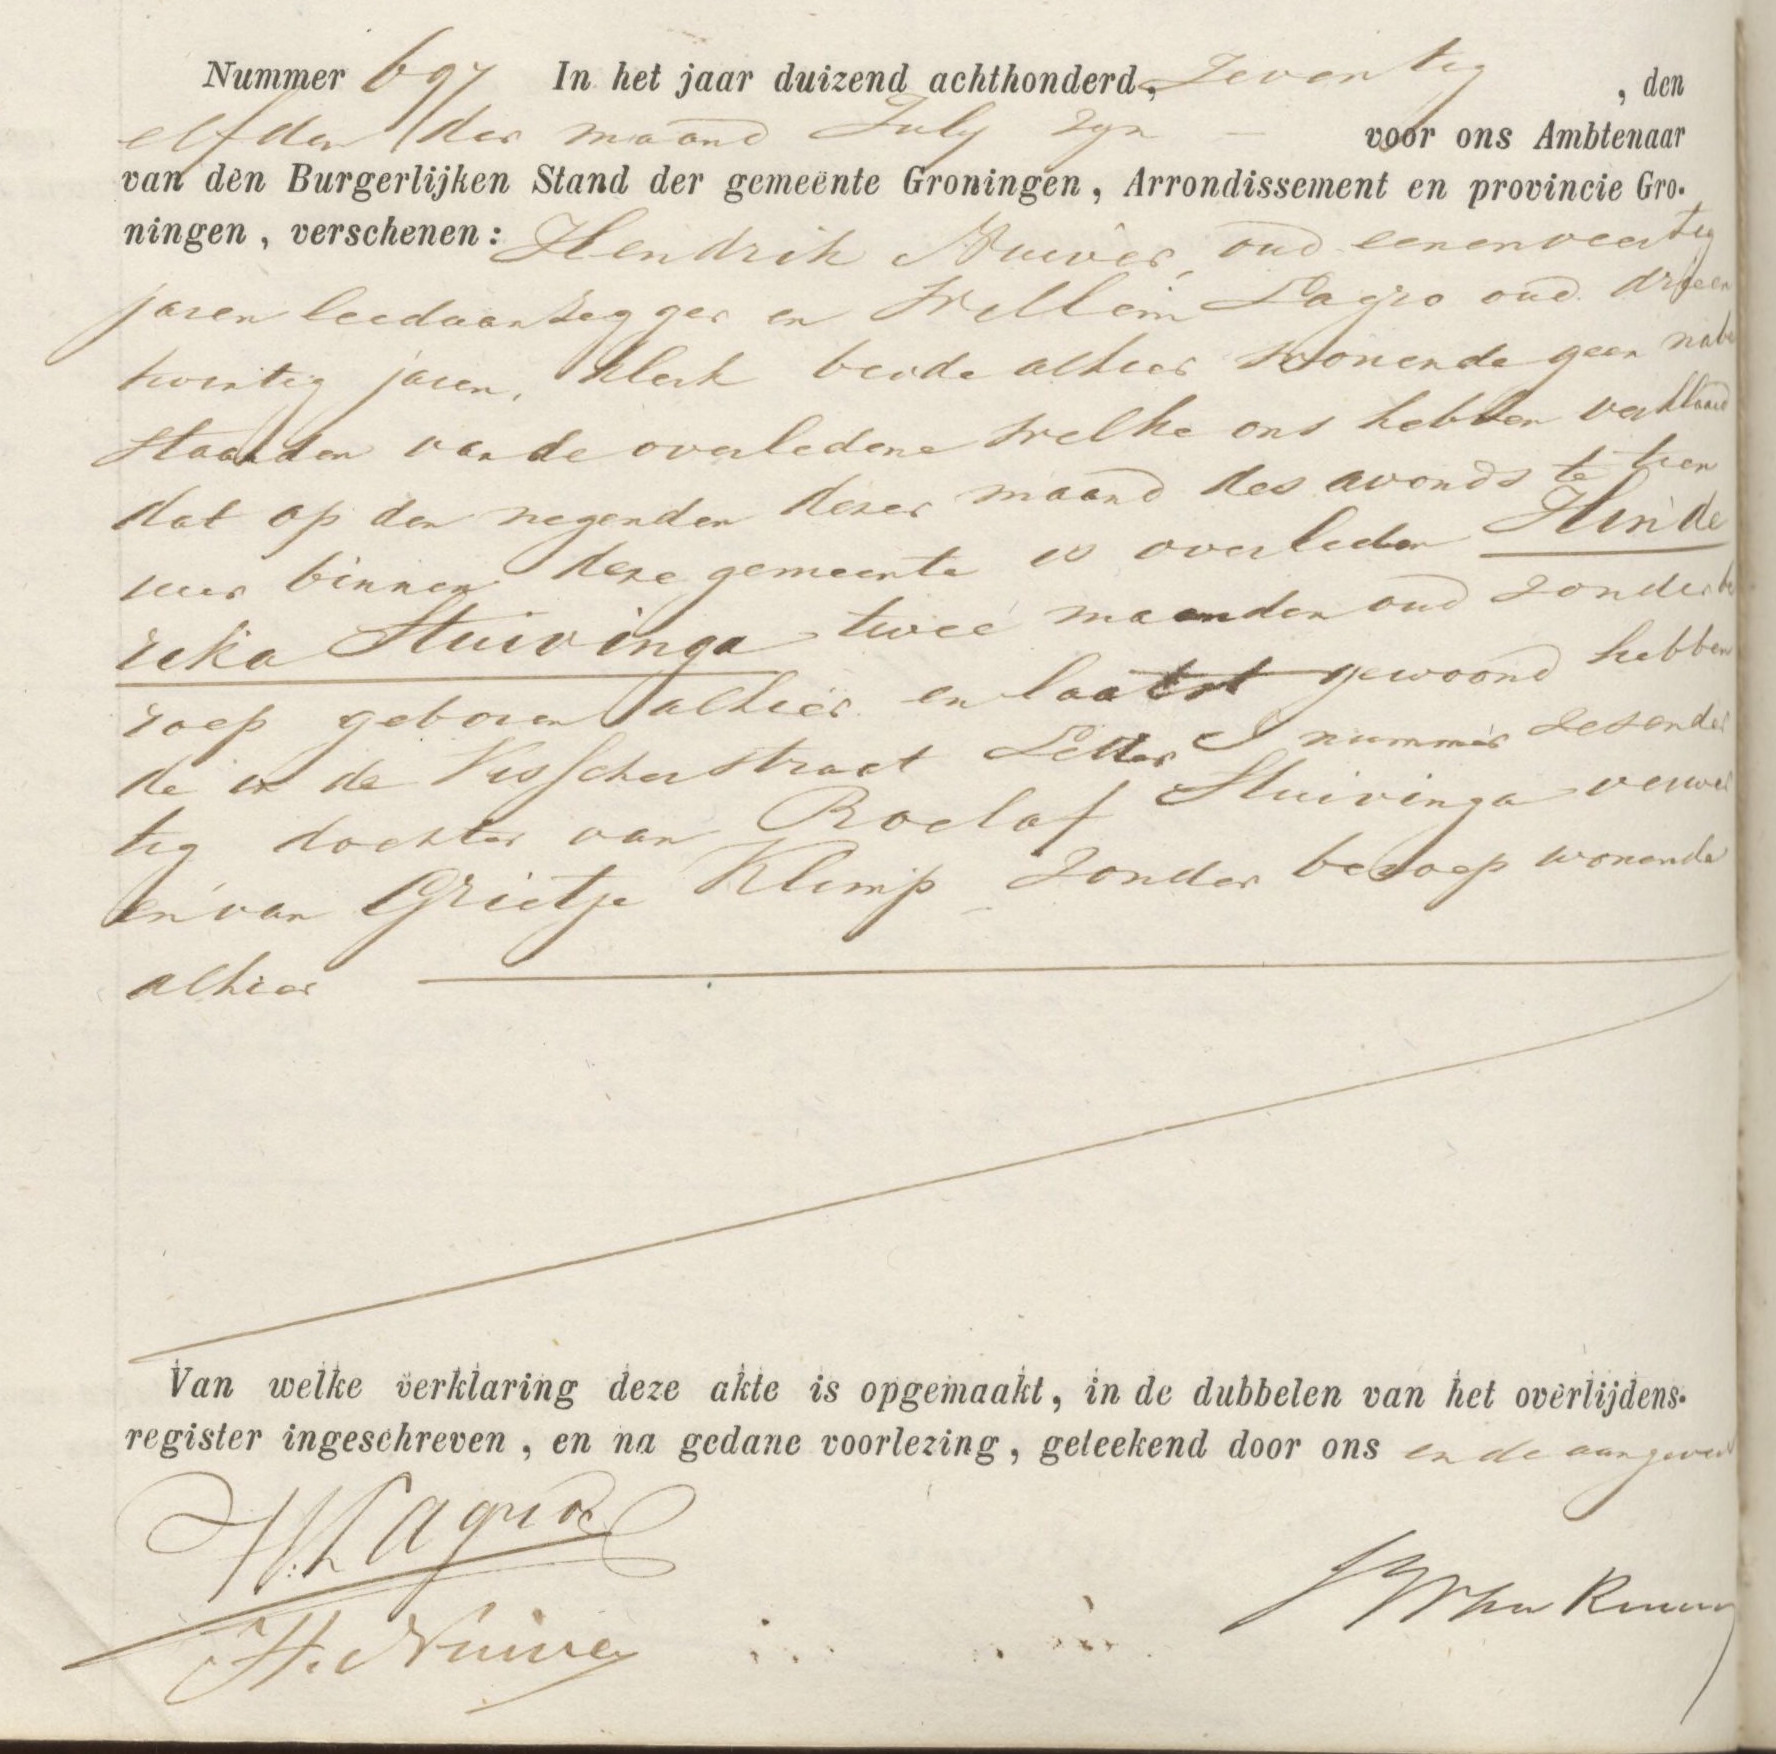 Nummer 697 In het jaar duizend achthonderd, Zeventig , den
elfden der maand July zyn voor ons Ambtenaar
van den Burgerlijken Stand der gemeente Groningen, Arrondissement en provincie Gro-
ningen, verschenen: Hendrik Nuiver, oud eenenveertig
jaren leedaanzegger en Willem Lagro oud drieen
twintig jaren, klerk beide alhier wonende geen nabe
staanden van de overledene welke ons hebben verklaard
dat op den negenden dezer maand des avonds te tien
uur binnen deze gemeente is overleden Hinde
rika Stuivinga twee maanden oud zonder be
roep geboren alhier en laatst gewoond hebben
de in de Visscherstraat Letter I nummer zesender
tig dochter van Roelof Stuivinga verwer
en van Grietje Klimp zonder beroep wonende
alhier
Van welke verklaring deze akte is opgemaakt, in de dubbelen van het overlijdens-
register ingeschreven, en na gedane voorlezing, geteekend door ons en de aangevers
W. Lagro
H. Nuiver